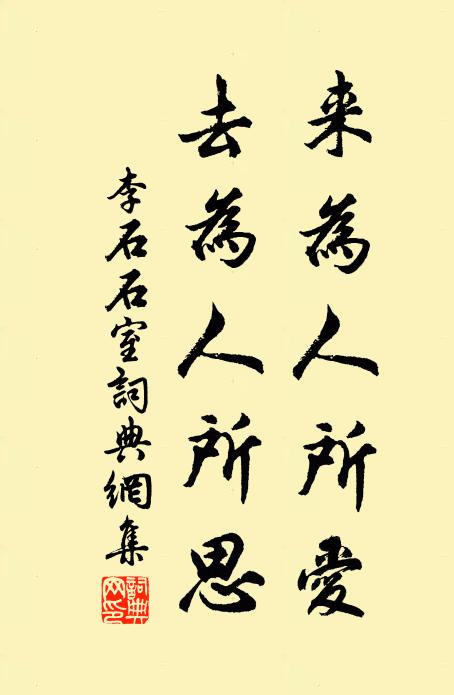 来為人所愛
去為人所思
李石石室詞典網集
詞典網印